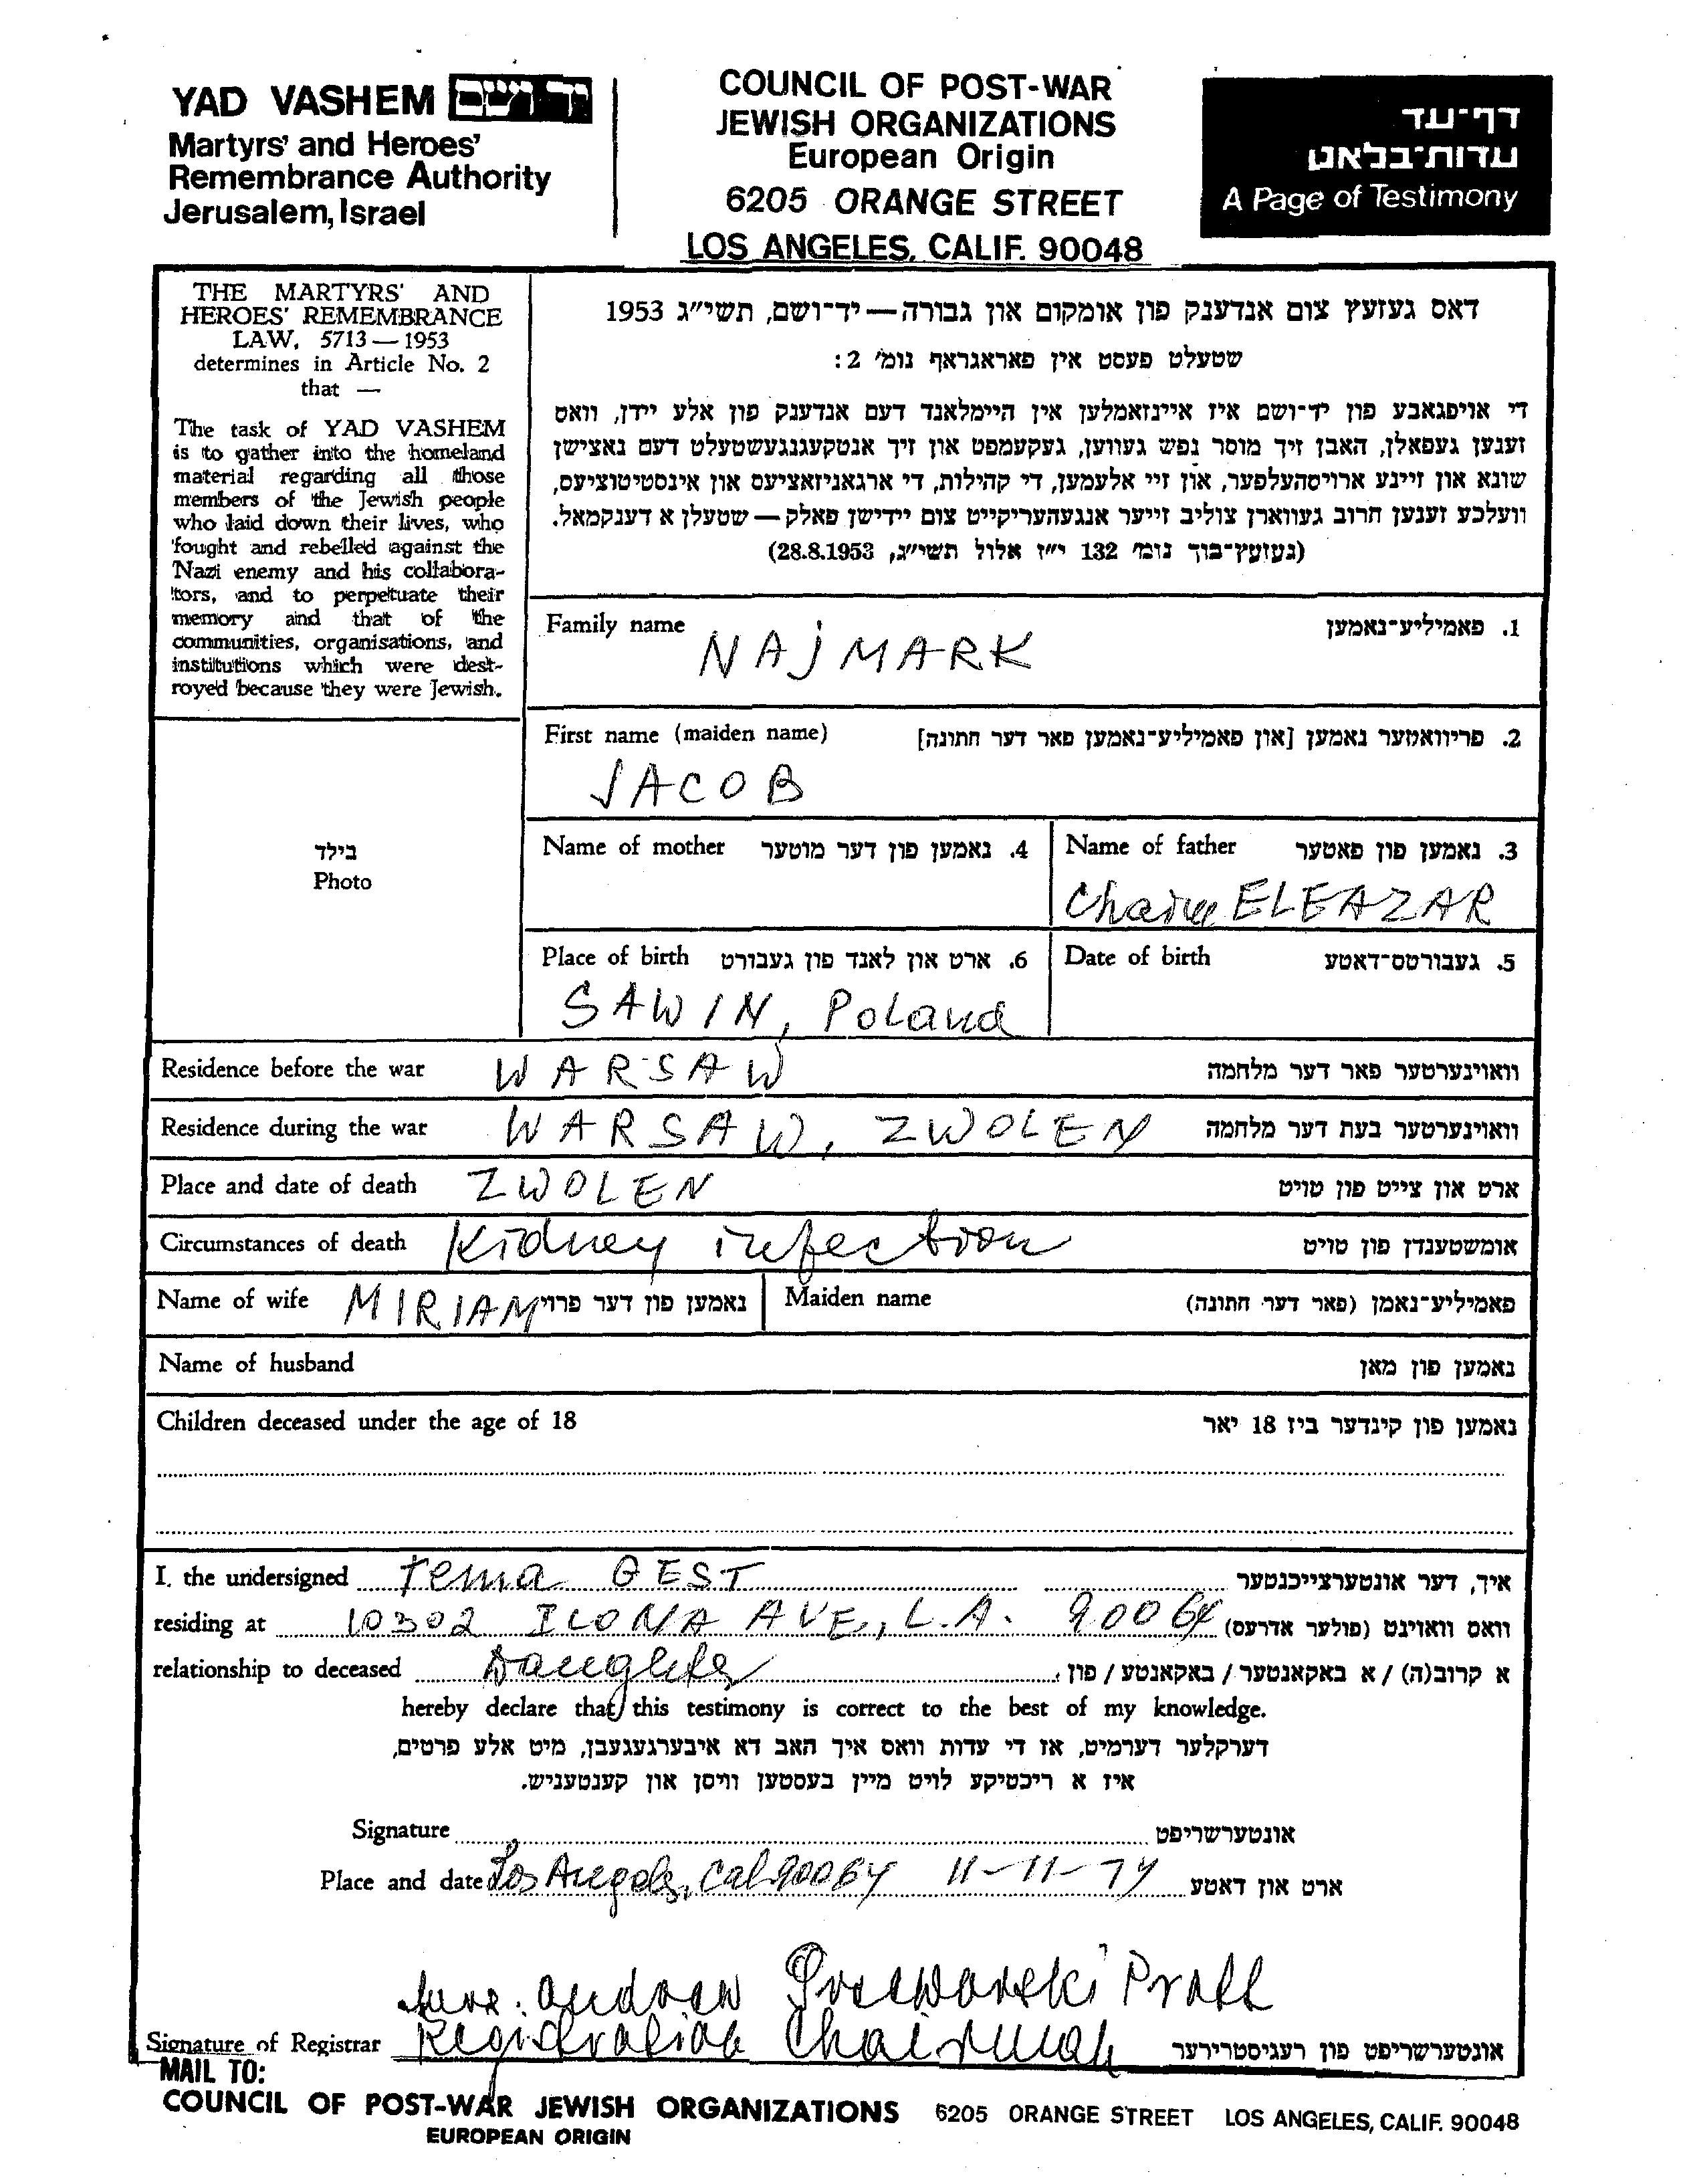 YAD VASHEM יד ושם
Martyrs' and Heroes'
Remembrance Authority
Jerusalem, Israel
COUNCIL OF POST-WAR
JEWISH ORGANIZATIONS
European Origin
6205 ORANGE STREET
LOS ANGELES, CALIF. 90048
דף-עד
עדות-בלאט
A Page of Testimony
THE MARTYRS' AND
HEROES' REMEMBRANCE
LAW, 5713—1953
determines in Article No. 2
that —
The task of YAD VASHEM
is to gather into the homeland
material regarding all those
members of the Jewish people
who laid down their lives, who
fought and rebelled against the
Nazi enemy and his collabora-
tors, and to perpetuate their
memory and that of the
communities, organisations, and
institutions which were dest-
royed because they were Jewish.
דאס געזעץ צום אנדענק פון אומקום און גבורה — יד-ושם, תשי״ג 1953
שטעלט פעסט אין פאראגראף נומ׳ 2:
די אויפגאבע פון יד-ושם איז איינזאמלען אין היימלאנד דעם אנדענק פון אלע יידן, וואס
זענען געפאלן, האבן זיך מוסר נפש געווען, געקעמפט און זיך אנטקעגנגעשטעלט דעם נאצישן
שונא און זיינע ארויסהעלפער, און זיי אלעמען, די קהילות, די ארגאניזאציעס און אינסטיטוציעס,
וועלכע זענען חרוב געווארן צוליב זייער אנגעהעריקייט צום יידישן פאלק — שטעלן א דענקמאל.
(געזעץ-בוך נומ׳ 132 י״ז אלול תשי״ג, 28.8.1953)
Family name NAJMARK 1. פאמיליע-נאמען
First name (maiden name) 2. פריוואטער נאמען [און פאמיליע-נאמען פאר דער חתונה]
JACOB
בילד
Photo
Name of mother 4. נאמען פון דער מוטער
Name of father 3. נאמען פון פאטער
Chaim ELEAZAR
Place of birth 6. ארט און לאנד פון געבורט
SAWIN, Poland
Date of birth 5. געבורטס-דאטע
Residence before the war WARSAW וואוינערטער פאר דער מלחמה
Residence during the war WARSAW, ZWOLEN וואוינערטער בעת דער מלחמה
Place and date of death ZWOLEN ארט און צייט פון טויט
Circumstances of death Kidney infection אומשטענדן פון טויט
Name of wife MIRIAM נאמען פון דער פרוי Maiden name פאמיליע-נאמן (פאר דער חתונה)
Name of husband נאמען פון מאן
Children deceased under the age of 18 נאמען פון קינדער ביז 18 יאר
I, the undersigned Tema GEST איך, דער אונטערצייכנטער
residing at 10302 ILONA AVE, L.A. 90064 וואס וואוינט (פולער אדרעס)
relationship to deceased Daughter א קרוב(ה) / א באקאנטער / באקאנטע / פון
hereby declare that this testimony is correct to the best of my knowledge.
דערקלער דערמיט, אז די עדות וואס איך האב דא איבערגעגעבן, מיט אלע פרטים,
איז א ריכטיקע לויט מיין בעסטען וויסן און קענטעניש.
Signature אונטערשריפט
Place and date Los Angeles, Cal 90064 11-11-74 ארט און דאטע
Pratt
Signature of Registrar Registration Chairman אונטערשריפט פון רעגיסטרירער
MAIL TO:
COUNCIL OF POST-WAR JEWISH ORGANIZATIONS 6205 ORANGE STREET LOS ANGELES, CALIF. 90048
EUROPEAN ORIGIN